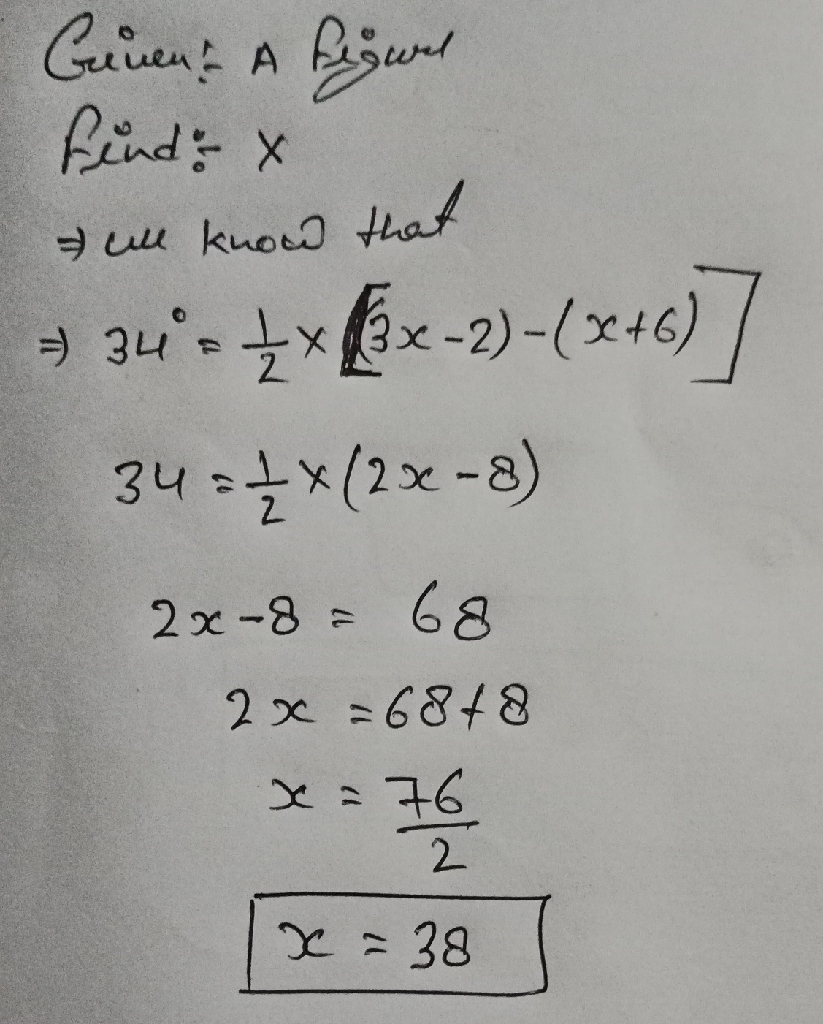 Given:- A figure
find:- x
⇒ we know that
⇒ 34° = 1/2 × [(3x-2)-(x+6)]
34 = 1/2 × (2x-8)
2x-8 = 68
2x = 68+8
x = 76/2
x = 38